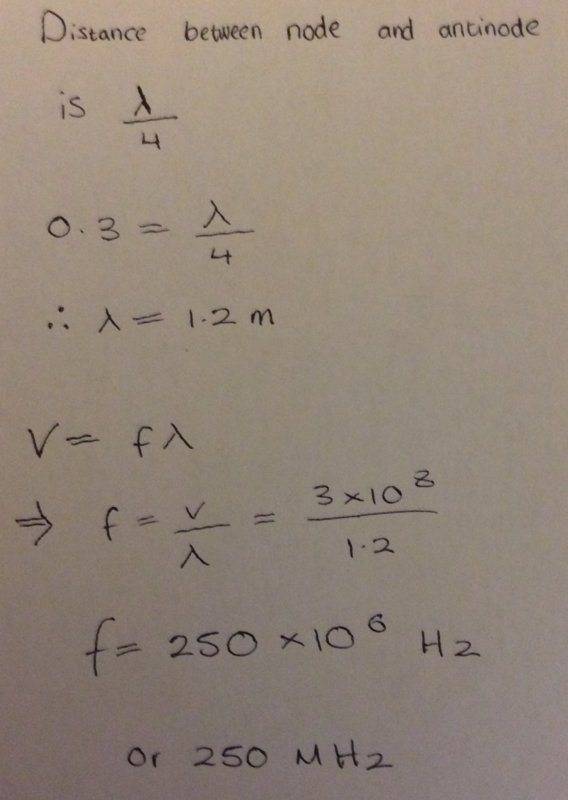 Distance between node and antinode
is λ/4
0.3 = λ/4
∴ λ = 1.2 m
V = fλ
⇒ f = v/λ = 3×10⁸/1.2
f = 250 ×10⁶ Hz
or 250 MHz